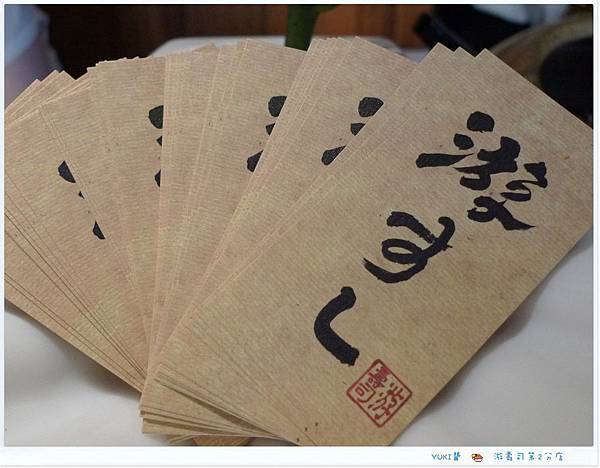 滋
す
し
YUKI醬 滋壽司第2分店